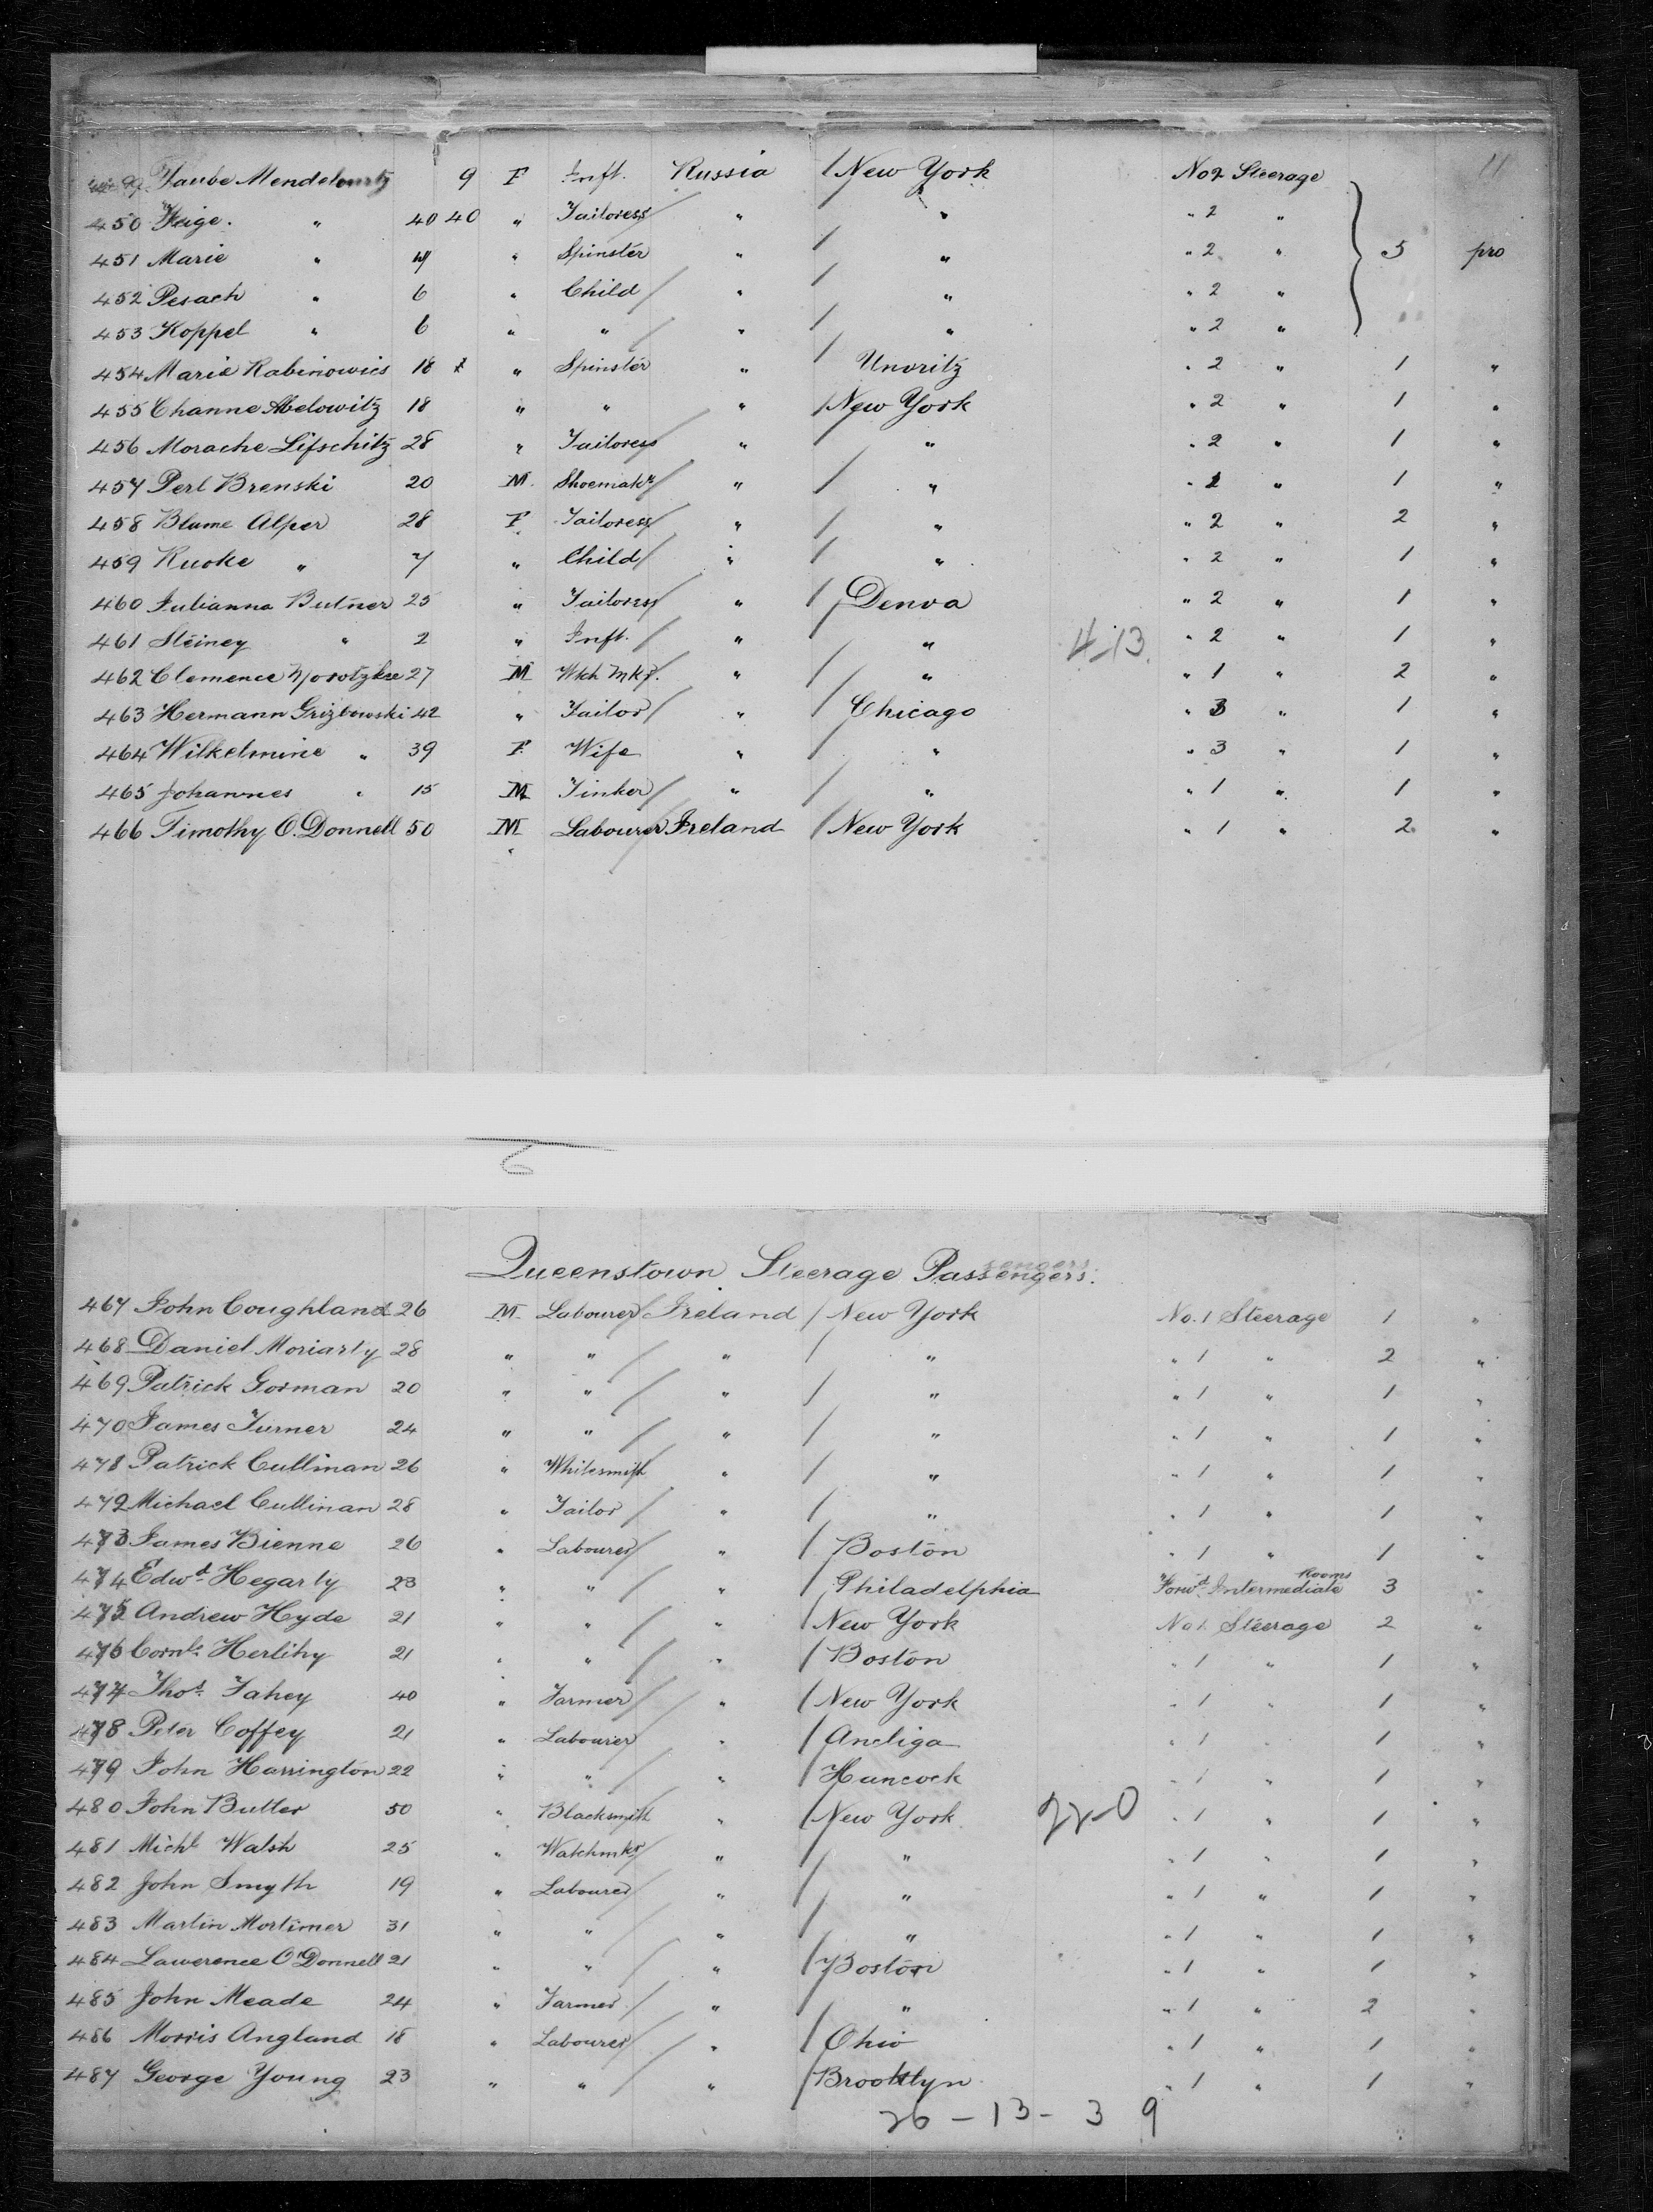 11
Taube Mendelowitz 9 F Inft. Russia / New York No 2 Steerage
450 Feige. " 40 40 " Tailoress / " " " 2 "
451 Marie " " Spinster " / " " 2 " 5 pro
452 Pesach " 6 " Child / " / " " 2 "
453 Koppel " 6 " " / " / " " 2 "
454 Marie Rabinowics 18 " Spinster " / Unoritz " 2 " 1 "
455 Channe Abelowitz 18 " " " / New York " 2 " 1 "
456 Morache Lifschitz 28 " Tailoress / " / " " 2 " 1 "
457 Perl Brenski 20 M. Shoemakr / " / " " 1 " 1 "
458 Blume Alper 28 F Tailoress / " / " " 2 " 2 "
459 Ruoke " 7 " Child / " / " " 2 " 1 "
460 Julianna Butner 25 " Tailoress / " / Denva " 2 " 1 "
461 Steiney " 2 " Inft. / " " 4-13. " 2 " 1 "
462 Clemence 27 M Wtch Mkr. / " / " " 1 " 2 "
463 Hermann Grizbowski 42 " Tailor / " / Chicago " 3 " 1 "
464 Wilhelmine " 39 F Wife " / " " 3 " 1 "
465 Johannes " 15 M Tinker / " / " " 1 " 1 "
466 Timothy O.Donnell 50 M Labourer Ireland / New York " 1 " 2 "
6
Queenstown Steerage Passengers.
467 John Coughland 26 M Labourer / Ireland / New York No. 1 Steerage 1 "
468 Daniel Moriarty 28 " " / " / " " 1 " 2 "
469 Patrick Gorman 20 " " / " / " " 1 " 1 "
470 James Turner 24 " " / " / " " 1 " 1 "
471 Patrick Cullinan 26 " Whitesmith " / " " 1 " 1 "
472 Michael Cullinan 28 " Tailor / " / " " 1 " 1 "
473 James Bienne 26 " Labourer / " / Boston " 1 " 1 "
474 Edwd. Hegarty 23 " " / " / Philadelphia Forwd. Intermediate Rooms 3 "
475 Andrew Hyde 21 " " / " / New York No 1 Steerage 2 "
476 Cornls Herlihy 21 " " / " / Boston " 1 " 1 "
477 Thos. Fahey 40 " Farmer / " / New York " 1 " 1 "
478 Peter Coffey 21 " Labourer " / Andiga " 1 " 1 "
479 John Harrington 22 " " / " / Hancock " 1 " 1 "
480 John Butler 50 " Blacksmith " / New York 22-0 " 1 " 1 "
481 Michl Walsh 25 " Watchmkr / " / " " 1 " 1 "
482 John Smyth 19 " Labourer / " / " " 1 " 1 "
483 Martin Mortimer 31 " " / " / " " 1 " 1 "
484 Lawerence O'Donnell 21 " " / " / Boston " 1 " 1 "
485 John Meade 24 " Farmer / " / " " 1 " 2 "
486 Morris Angland 18 " Labourer / " / Ohio " 1 " 1 "
487 George Young 23 " " / " / Brooklyn " 1 " 1 "
26 - 13 - 3 9